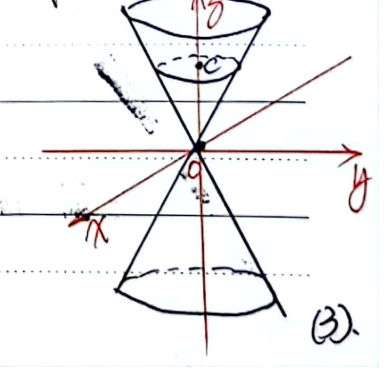 z
c
O
y
x
(3).